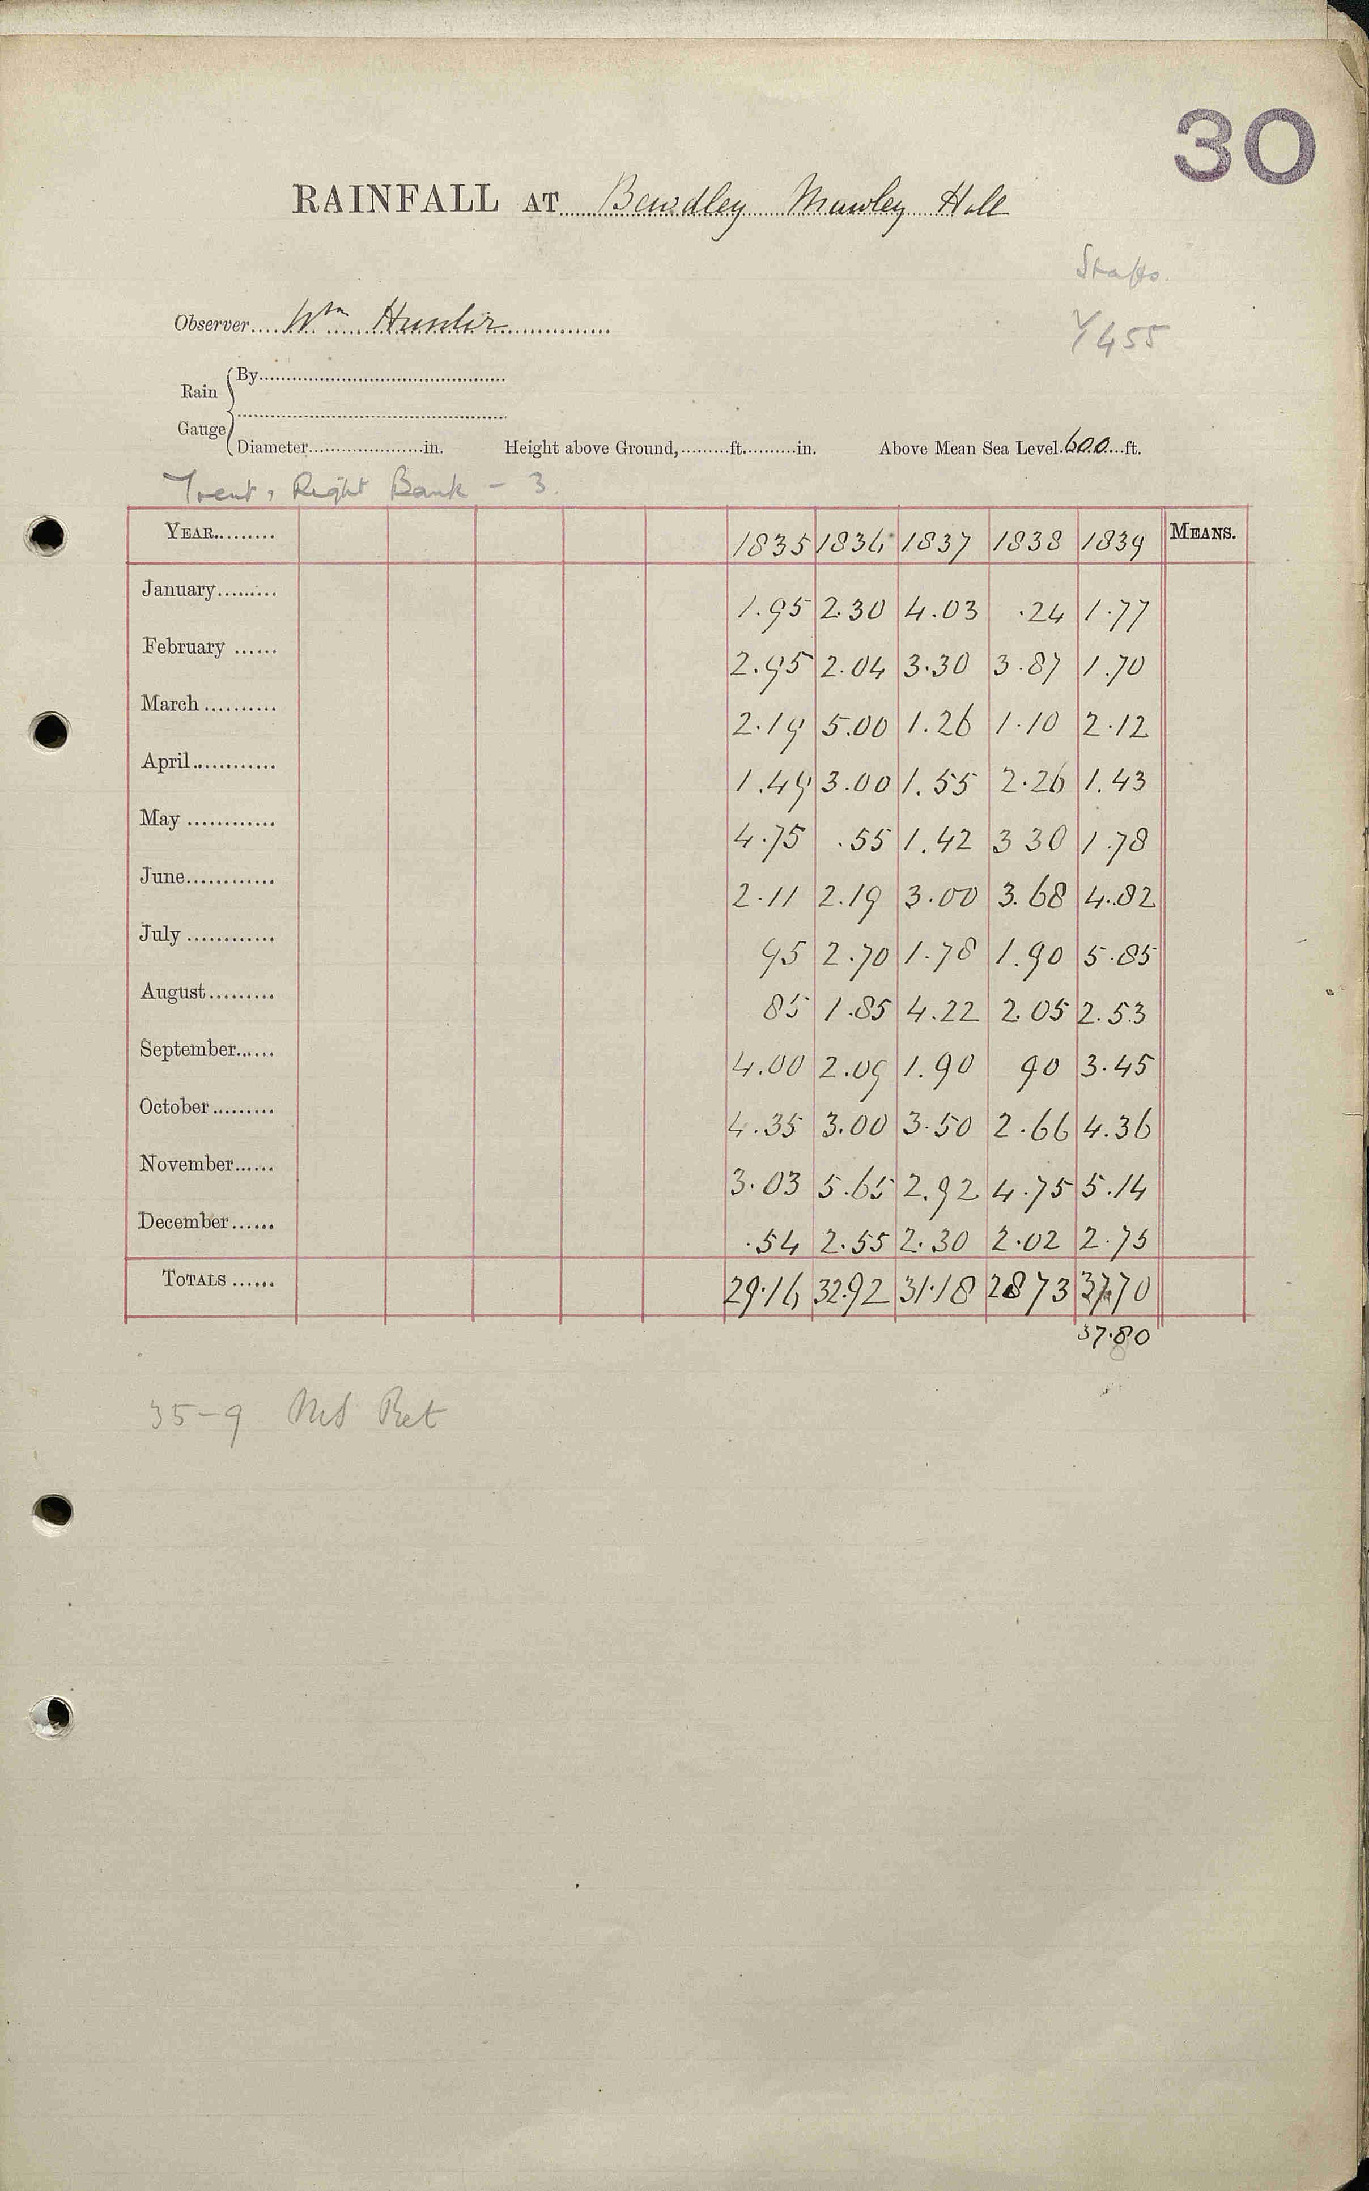 30
RAINFALL AT Bewdley Mawley Hall
Staffs.
Observer.... Wm Hunter
Y455
Rain Gauge
By
Diameter in. Height above Ground, ft. in. Above Mean Sea Level 600 ft.
Trent, Right Bank - 3.
YEAR 1835 1836 1837 1838 1839 MEANS.
January 1.95 2.30 4.03 .24 1.77
February 2.95 2.04 3.30 3.87 1.70
March 2.19 5.00 1.26 1.10 2.12
April 1.49 3.00 1.55 2.26 1.43
May 4.75 .55 1.42 3 30 1.78
June 2.11 2.19 3.00 3.68 4.82
July 95 2.70 1.78 1.90 5.85
August 85 1.85 4.22 2.05 2.53
September 4.00 2.09 1.90 90 3.45
October 4.35 3.00 3.50 2.66 4.36
November 3.03 5.65 2.92 4.75 5.14
December .54 2.55 2.30 2.02 2.75
TOTALS 29.16 32.92 31.18 28 73 37.70
37.80
35-9 MS Ret